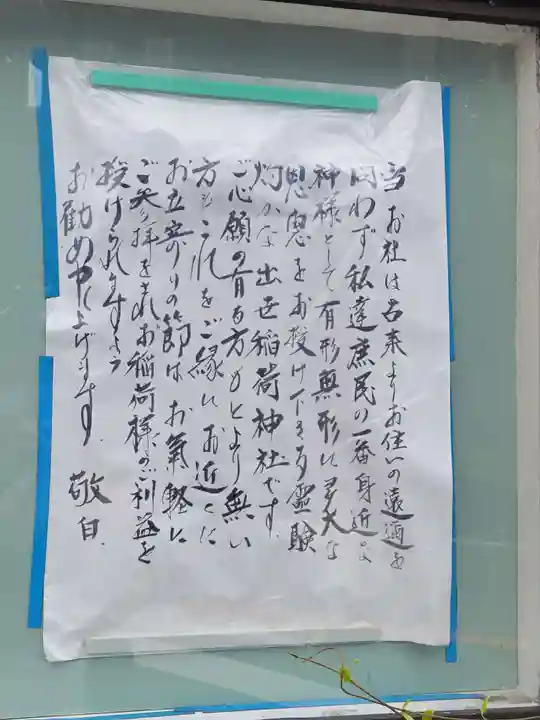 当お社は古来よりお住いの遠邇を
問わず私達庶民の一番身近な
神様として有形無形に多大な
恩恵をお授け下さる霊験
灼かな出世稲荷神社です
ご心願の有る方もとより無い
方もこれをご縁にお近くに
お立寄りの節はお気軽に
ご参拝をされお稲荷様のご利益を
授けられますよう
お勧め申し上げます
敬白